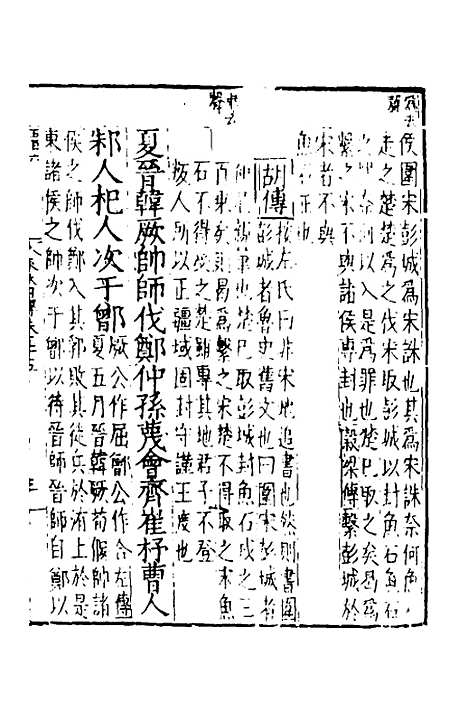 侯圍宋彭城為宋誅也其為宋誅奈何魚石
走之楚楚為之伐宋取彭城以封魚石魚石
之罪奈何以入是為罪也楚已取之矣曷為
繫之宋不與諸侯專封也穀梁傳繫彭城於
宋者不與
魚石正也
胡傳 按左氏曰非宋地追書也然則書圍
彭城者魯史舊文也曰圍宋彭城者
仲尼親筆也楚已取彭城封魚石戍之三
百乘矣則曷為繫之宋楚不得取之宋魚
石不得受之楚雖專其地君子不登
叛人所以正疆域固封守謹王度也
夏晉韓厥帥師伐鄭仲孫蔑會齊崔杼曹人
邾人杞人次于鄫 厥公作屈鄫公作合左傳
夏五月晉韓厥荀偃帥諸
侯之師伐鄭入其郛敗其徒兵於洧上於是
東諸侯之師次于鄫以待晉師晉師自鄭以